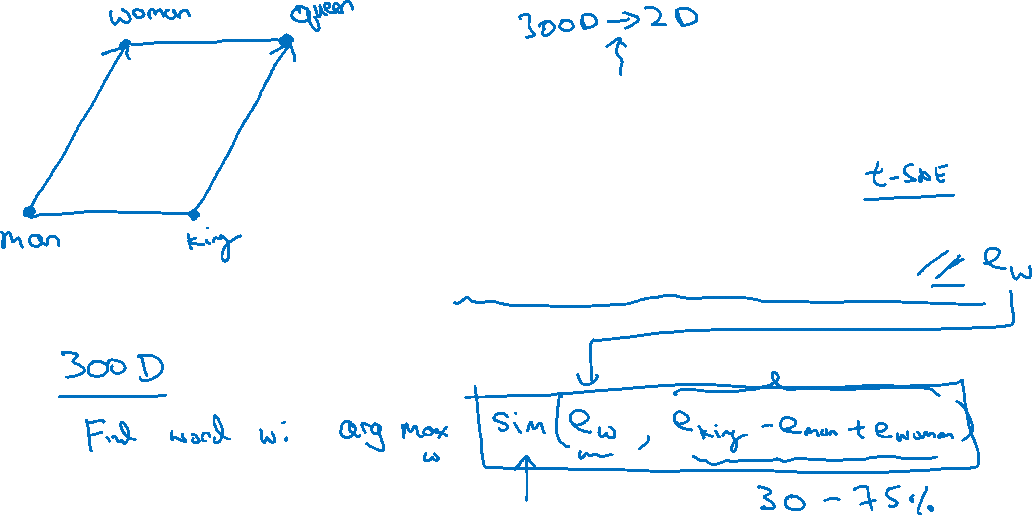 woman queen
300D → 2D
t-SNE
man king
e_w
300 D
Find word w: arg max_w sim(e_w, e_king - e_man + e_woman)
30 - 75%